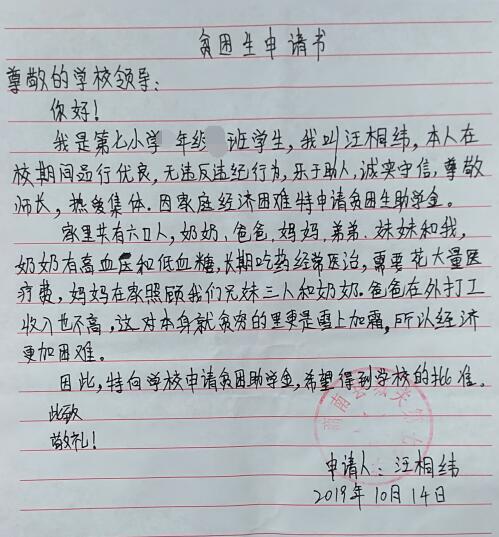 贫困生申请书
尊敬的学校领导:
你好!
我是第七小学 年级 班学生,我叫汪相纬,本人在
校期间品行优良,无违反违纪行为,乐于助人,诚实守信,尊敬
师长,热爱集体.因家庭经济困难特申请贫困生助学金。
家里共有六口人,奶奶、爸爸、妈妈、弟弟、妹妹和我,
奶奶有高血压和低血糖,长期吃药经常医治,需要花大量医
疗费,妈妈在家照顾我们兄妹三人和奶奶.爸爸在外打工
收入也不高,这对本身就贫穷的里更是雪上加霜,所以经济
更加困难。
因此,特向学校申请贫困助学金,希望得到学校的批准.
此致
敬礼!
申请人:汪相纬
2019年10月14日